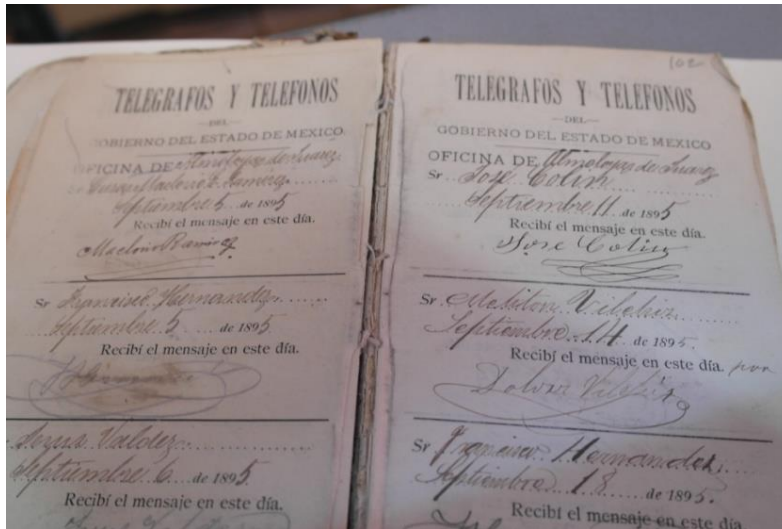 TELEGRAFOS Y TELEFONOS
DEL
GOBIERNO DEL ESTADO DE MEXICO
OFICINA DE Almoloya de Juarez
Ramirez
Septiembre 5 de 1895
Recibí el mensaje en este día.
Ramirez
Sr Francisco Hernandez
Septiembre 5 de 1895
Recibí el mensaje en este día.
Valdez
Septiembre 6 de 1895.
Recibí el mensaje en este día.
102
TELEGRAFOS Y TELEFONOS
DEL
GOBIERNO DEL ESTADO DE MEXICO
OFICINA DE Almoloya de Juarez
Sr. Jose Colin
Septiembre 11 de 1895
Recibí el mensaje en este día.
Jose Colin
Sr Meliton Vilchiz
Septiembre 14 de 1895.
Recibí el mensaje en este día. por
Vilchiz
Sr Francisco Hernandez
Septiembre 18 de 1895.
Recibí el mensaje en este día.